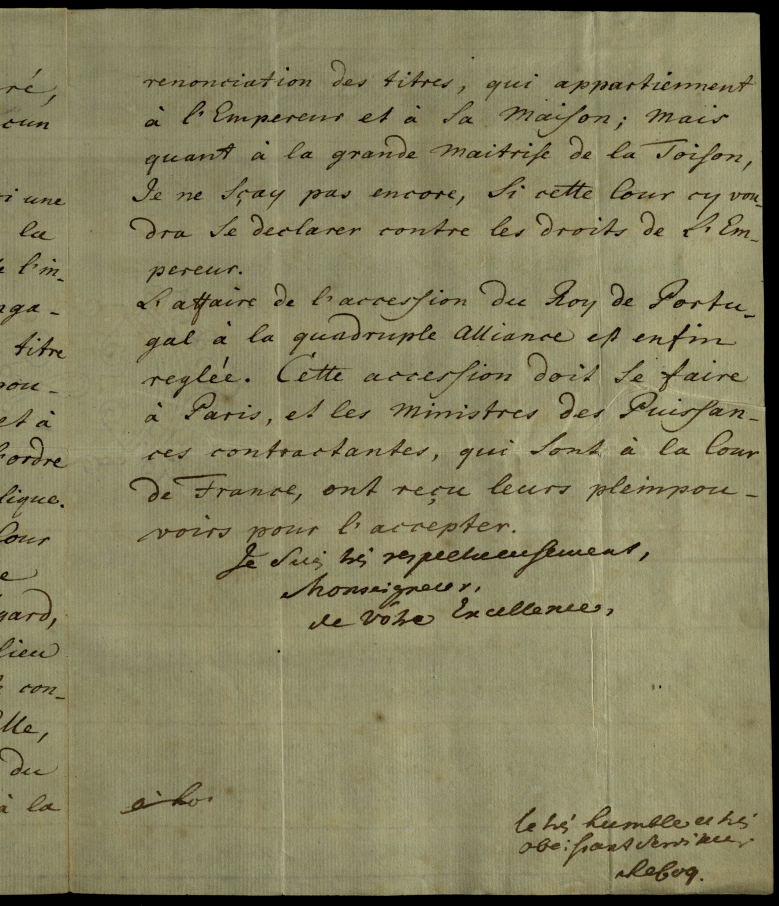 ré,
cun
i une
la
l'in-
nga-
titre
pou-
et à
l'ordre
lique.
Cour
e
gard,
lieu
con-
lle,
du
à la
renonciation des titres, qui appartiennent
à l'Empereur et à Sa Maison; mais
quant à la grande Maitrise de la Toison,
Je ne sçay pas encore, Si cette Cour cy vou-
dra Se declarer contre les droits de L'Em-
pereur.
L'affaire de l'accession du Roy de Portu-
gal à la quadruple Alliance est enfin
reglée. Cette accession doit Se faire
à Paris, et les Ministres des Puissan-
ces contractantes, qui Sont à la Cour
de France, ont reçu leurs pleinpou-
voirs pour l'accepter.
Je Suis très respectueusement,
Monseigneur,
de Vôtre Excellence,
le très humble et très
obeissant Serviteur